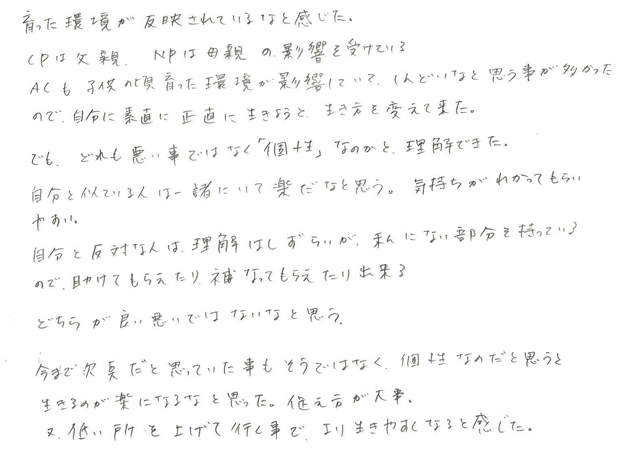 育った環境が反映されているなと感じた。
CPは父親、NPは母親の影響を受けている
ACも子供の頃育った環境が影響していて、しんどいなと思う事が多かった
ので、自分に素直に正直に生きようと、生き方を変えて来た。
でも、どれも悪い事ではなく「個性」なのかと、理解できた。
自分と似ている人は一緒にいて楽だなと思う。気持ちがわかってもらい
やすい。
自分と反対な人は、理解はしずらいが、私にない部分を持っている
ので、助けてもらえたり、補なってもらえたり出来る
どちらが良い悪いではないなと思う。
今まで欠点だと思っていた事もそうではなく、個性なのだと思うと
生きるのが楽になるなと思った。伝え方が大事。
又、低い所を上げて行く事で、より生きやすくなると感じた。